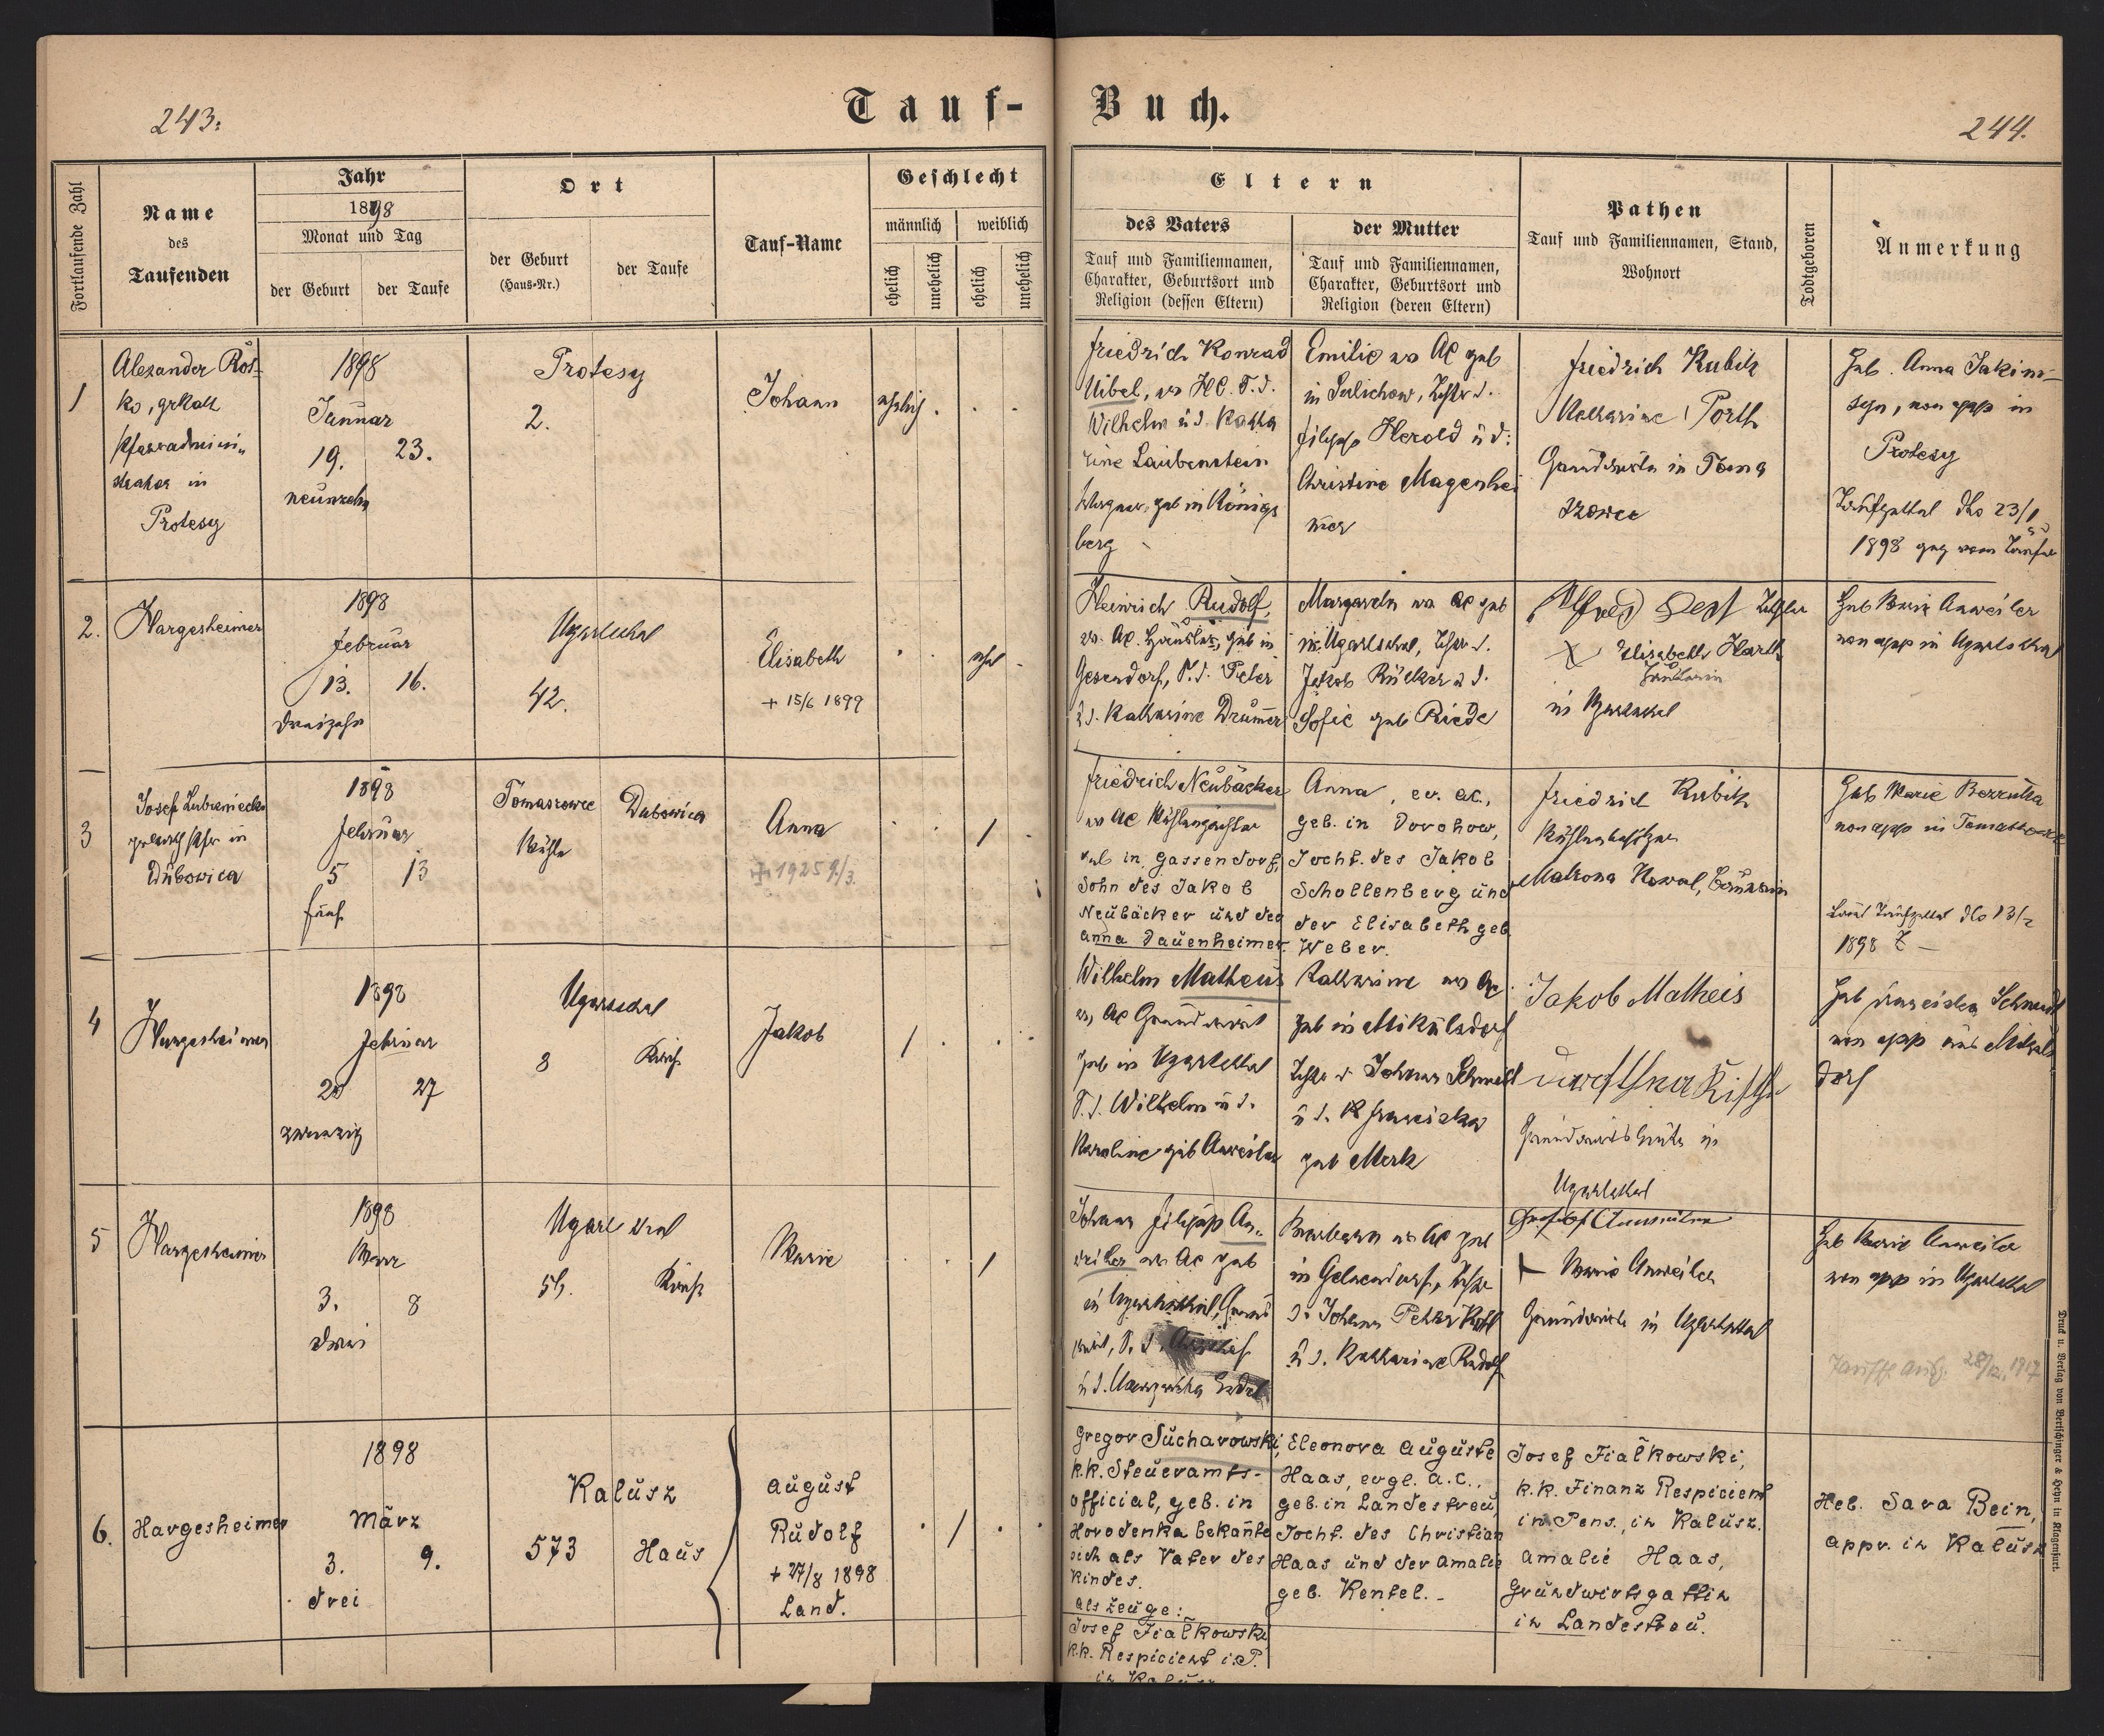 243.
Tauf-
Buch.
244.
Fortlaufende Zahl
Name
des
Taufenden
Jahr
1898
Monat und Tag
der Geburt
der Taufe
Ort
der Geburt
(Haus-Nr.)
der Taufe
Tauf-Name
Geschlecht
männlich
weiblich
ehelich
unehelich
ehelich
unehelich
Eltern
des Vaters
Tauf und Familiennamen,
Charakter, Geburtsort und
Religion (dessen Eltern)
der Mutter
Tauf und Familiennamen,
Charakter, Geburtsort und
Religion (deren Eltern)
Pathen
Tauf und Familiennamen, Stand,
Wohnort
Todtgeboren
Anmerkung
1
Alexander Ros-
ko, grkath
Pfarradmini-
strator in
Protesy
1898
Januar
19. 23.
neunzehn
Protesy
2.
Johann
ehelich
Friedrich Konrad
Uibel, ev HC. S. d.
Wilhelm u d. Katha
rine Laubenstein
Wagner, geb in Königs
berg
Emilie ev AC geb
in Sulichow, Tcht d.
Filipp Herold u d:
Christine Magenhei
mer
Friedrich Kubik
Katharine Porth
Grundwirte in Toma
szowce
Heb. Anna Jakim-
non app in
Protesy
Taufzettel dto 23/1
1898 vom Taufer
2.
Hargesheimer
1898
Februar
13. 16.
dreizehn
Ugartsthal
42.
Elisabeth
+ 15/6 1899
ehel
Heinrich Rudolf,
ev. AC. geb in
Gesendorf, S. d. Peter
u d. Katharine Drummer
Margareta ev AC geb
in Ugartsthal, Tcht d.
Jakob Rülker u d.
Sofie geb Riede
Alfred
X Elisabeth Harth
in Ugartsthal
Heb Marie Anweiler
non app in Ugartsthal
3
Josef Lubianiecki
in
Dubowica
1898
Februar
5 13
fünf
Tomaszowce
Mühle
Dubowica
Anna
+ 1925 9/3.
/
Friedrich Neubäcker
ev AC Mühlenpächter
geb in Gassendorf,
Sohn des Jakob
Neubäcker und der
Anna Dauenheimer.
Anna, ev. AC.,
geb. in Dorohow,
Tocht. des Jakob
Schollenberg und
der Elisabeth geb.
Weber.
Friedrich Kubik
Mühlenbesitzer
Matrona Kowal, Bäuerin
Heb Marie
non app in Tomaszowce
laut Taufzettel dto 13/2
1898 Z —
4
Hargesheimer
1898
Februar
20 27
zwanzig
Ugartsthal
8
Kirche
Jakob
/
Wilhelm Matheus
ev, AC Grundwirt
geb in Ugartsthal
S. d. Wilhelm u d.
Karoline geb Anweiler
Katharine ev AC
geb in Mikulsdorf
Tcht d Johann Schmidt
u d. Franciska
geb Merk
Jakob Matheis
Grundwirtsleute in
Ugartsthal
Heb Franciska Schmidt
non app aus Mikuls
dorf
5
Hargesheimer
1898
März
3. 8
drei
Ugartsthal
Kirche
Marie
/
Johann Filipp An-
weiler ev AC geb
in Ugartsthal, Grund
wirt, S. d.
Barbara ev AC geb
in Gelsendorf, Tcht
d. Johann Peter
u d. Katharine Rudolf
+ Marie Anweiler
Grundwirte in Ugartsthal
Heb Marie Anweiler
non app in Ugartsthal
28/12, 1917
6.
Hargesheimer
1898
März
3. 9.
drei
Kalusz
573 Haus
August
Rudolf
+ 27/8 1898
Land.
/
Gregor Sucharowski,
k.k. Steueramts-
official, geb. in
Horodenka bekannte
sich als Vater des
Kindes.
als Zeuge:
Josef Fialkowski
k.k. Respicient i.P.
in Kalusz
Eleonora Auguste
Haas, evgl. A.C.,
geb. in Landestreu,
Tocht. des Christian
Haas und der Amalie
geb. Kentel. -
Josef Fialkowski,
k.k. Finanz Respicient
in Pens., in Kalusz.
Amalie Haas,
Grundwirtsgattin
in Landestreu.
Heb. Sara Bein,
appr. in Kalusz
Druck u. Verlag von Bertschinger & Heyn in Klagenfurt.